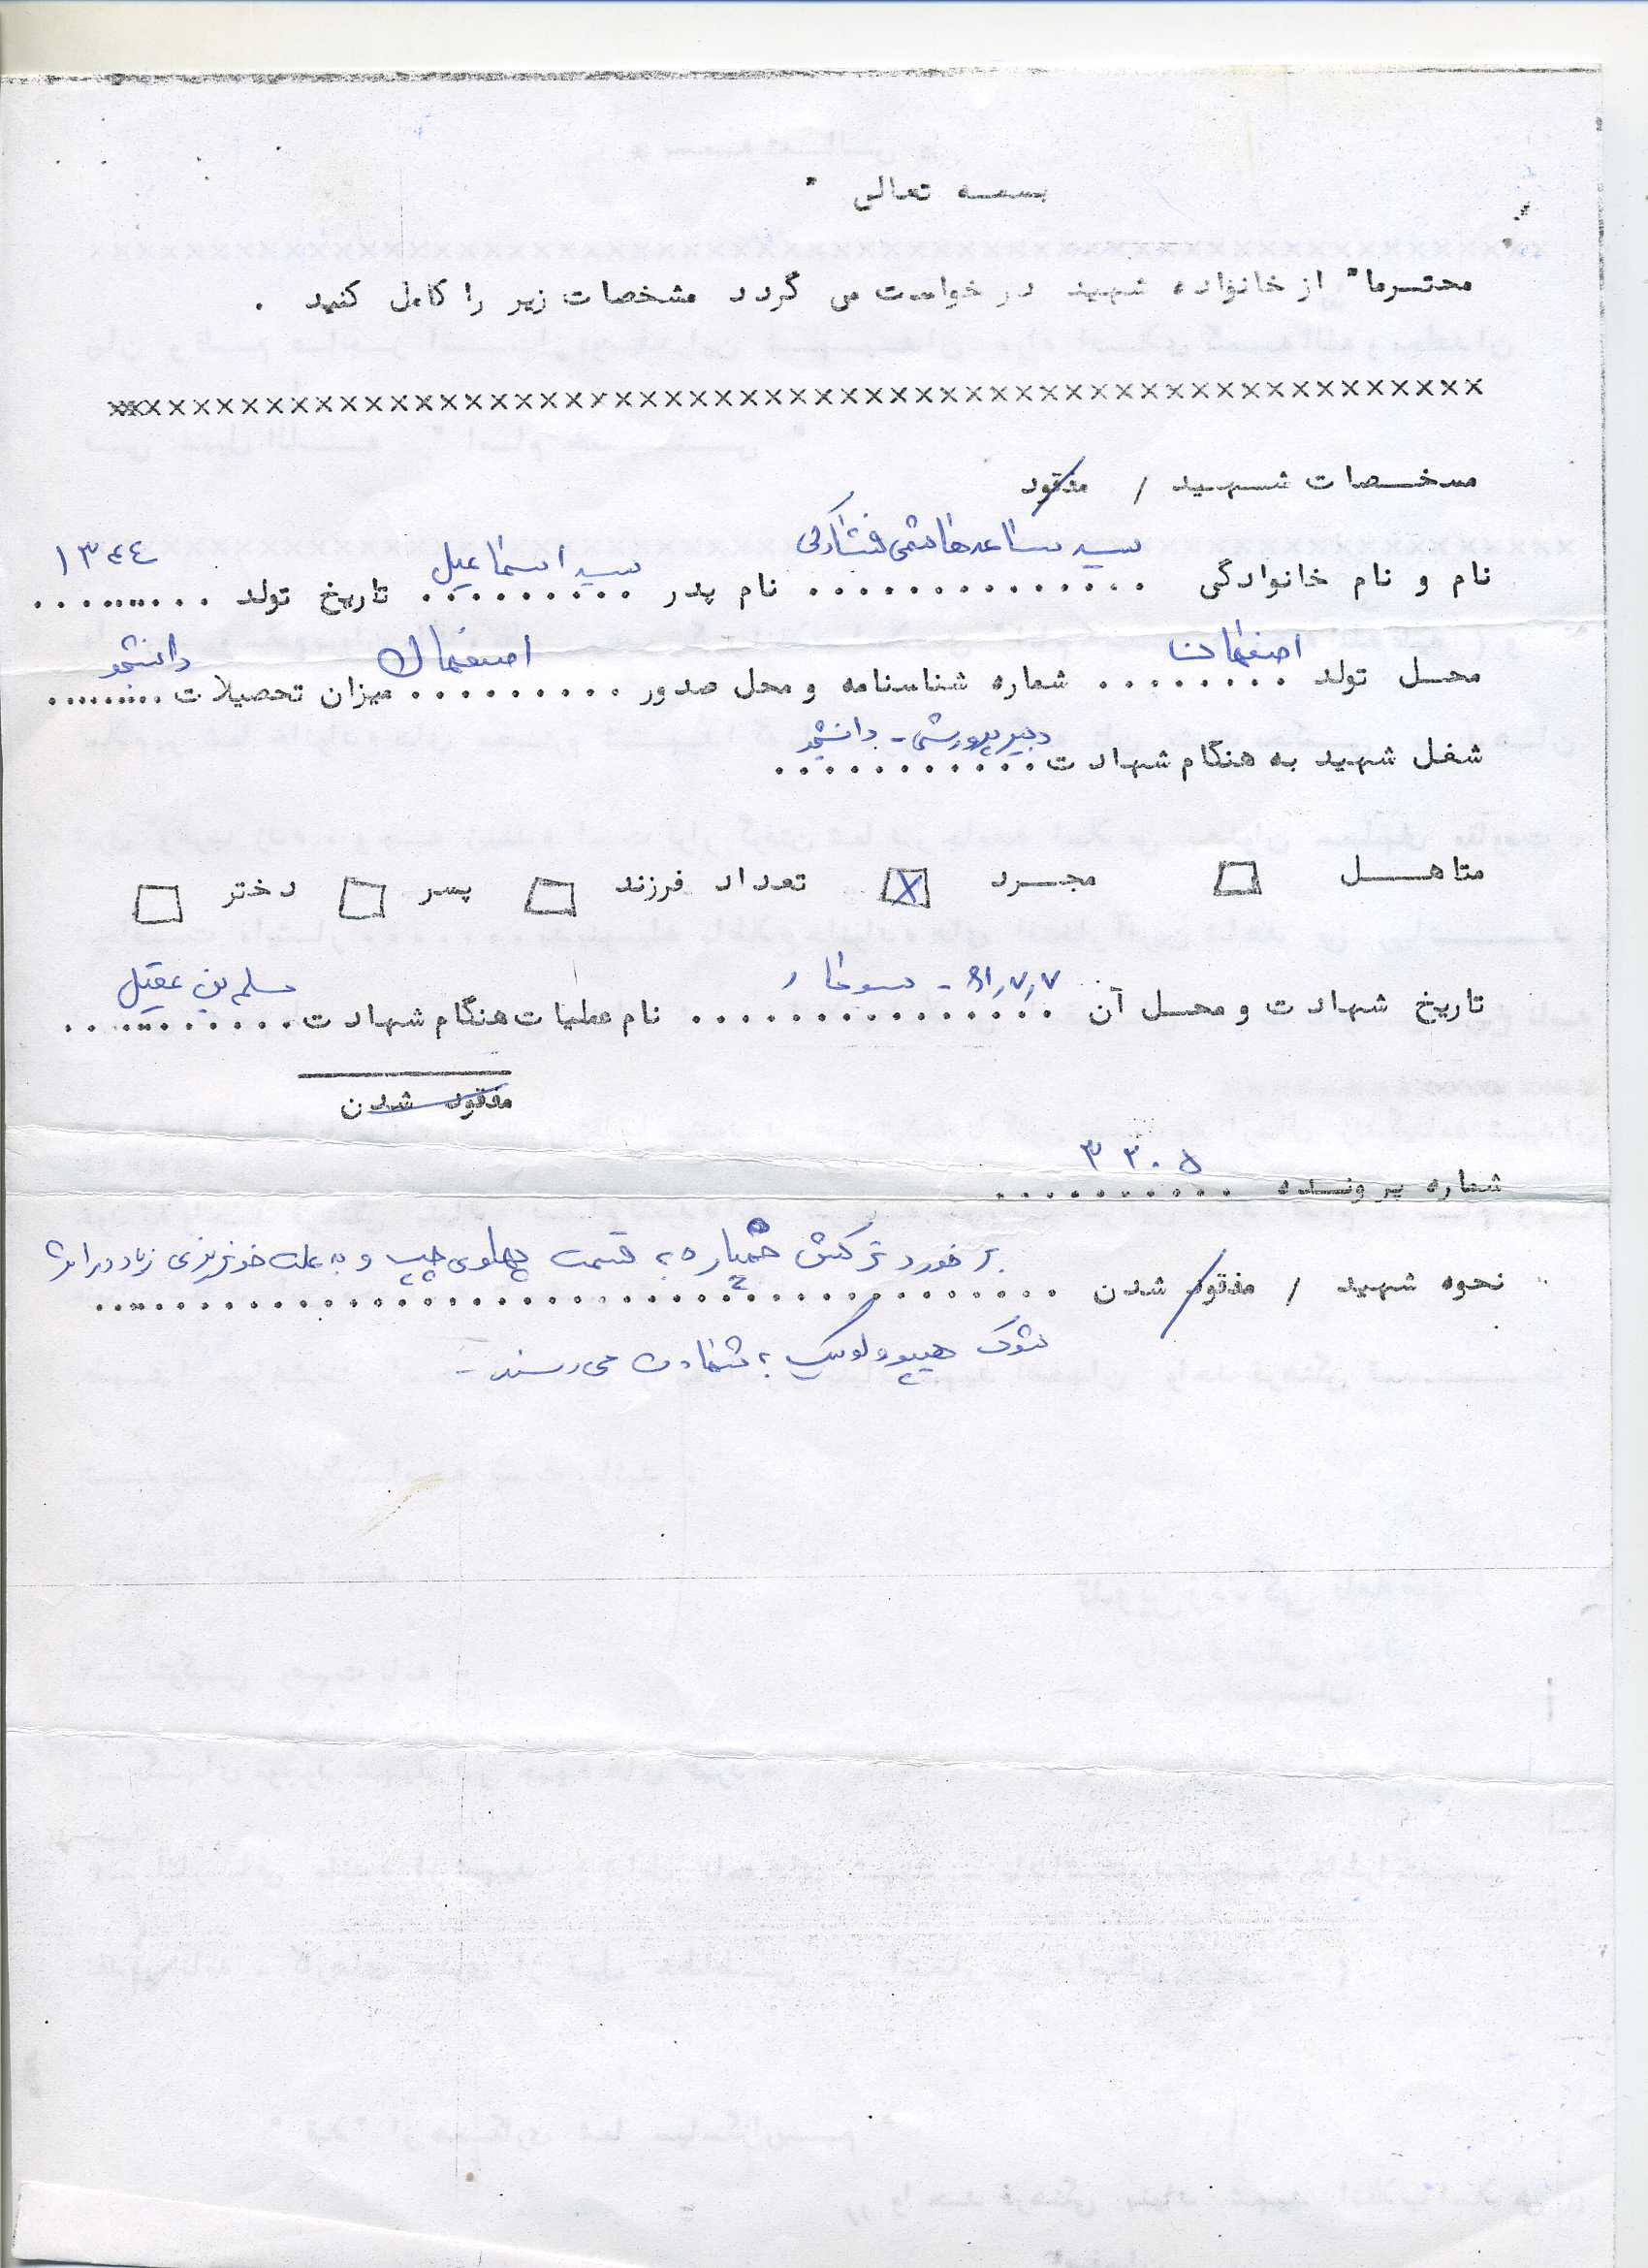 بسمه تعالی
محترما" از خانواده شهید درخواست می گردد مشخصات زیر را کامل کنید .
××××××××××××××××××××××××××××××××××××××××××××××××××××××
مشخصات شهید / مفقود
نام و نام خانوادگی سید ساعد هاشمی فشارکی نام پدر سید اسماعیل تاریخ تولد ۱۳۴۴
محل تولد اصفهان شماره شناسنامه و محل صدور اصفهان میزان تحصیلات دانشجو
شغل شهید به هنگام شهادت دبیر پرورشی - دانشجو
متاهل □ مجرد ☒ تعداد فرزند □ پسر □ دختر □
تاریخ شهادت و محل آن ۶۱,۷,۷ - سومار نام عملیات هنگام شهادت مسلم بن عقیل
مفقود شدن
شماره پرونده ۳۲۰۵
نحوه شهید / مفقود شدن برخورد ترکش خمپاره به قسمت پهلوی چپ و به علت خونریزی زیاد در اثر
شوک هیپوولومیک به شهادت می رسند -